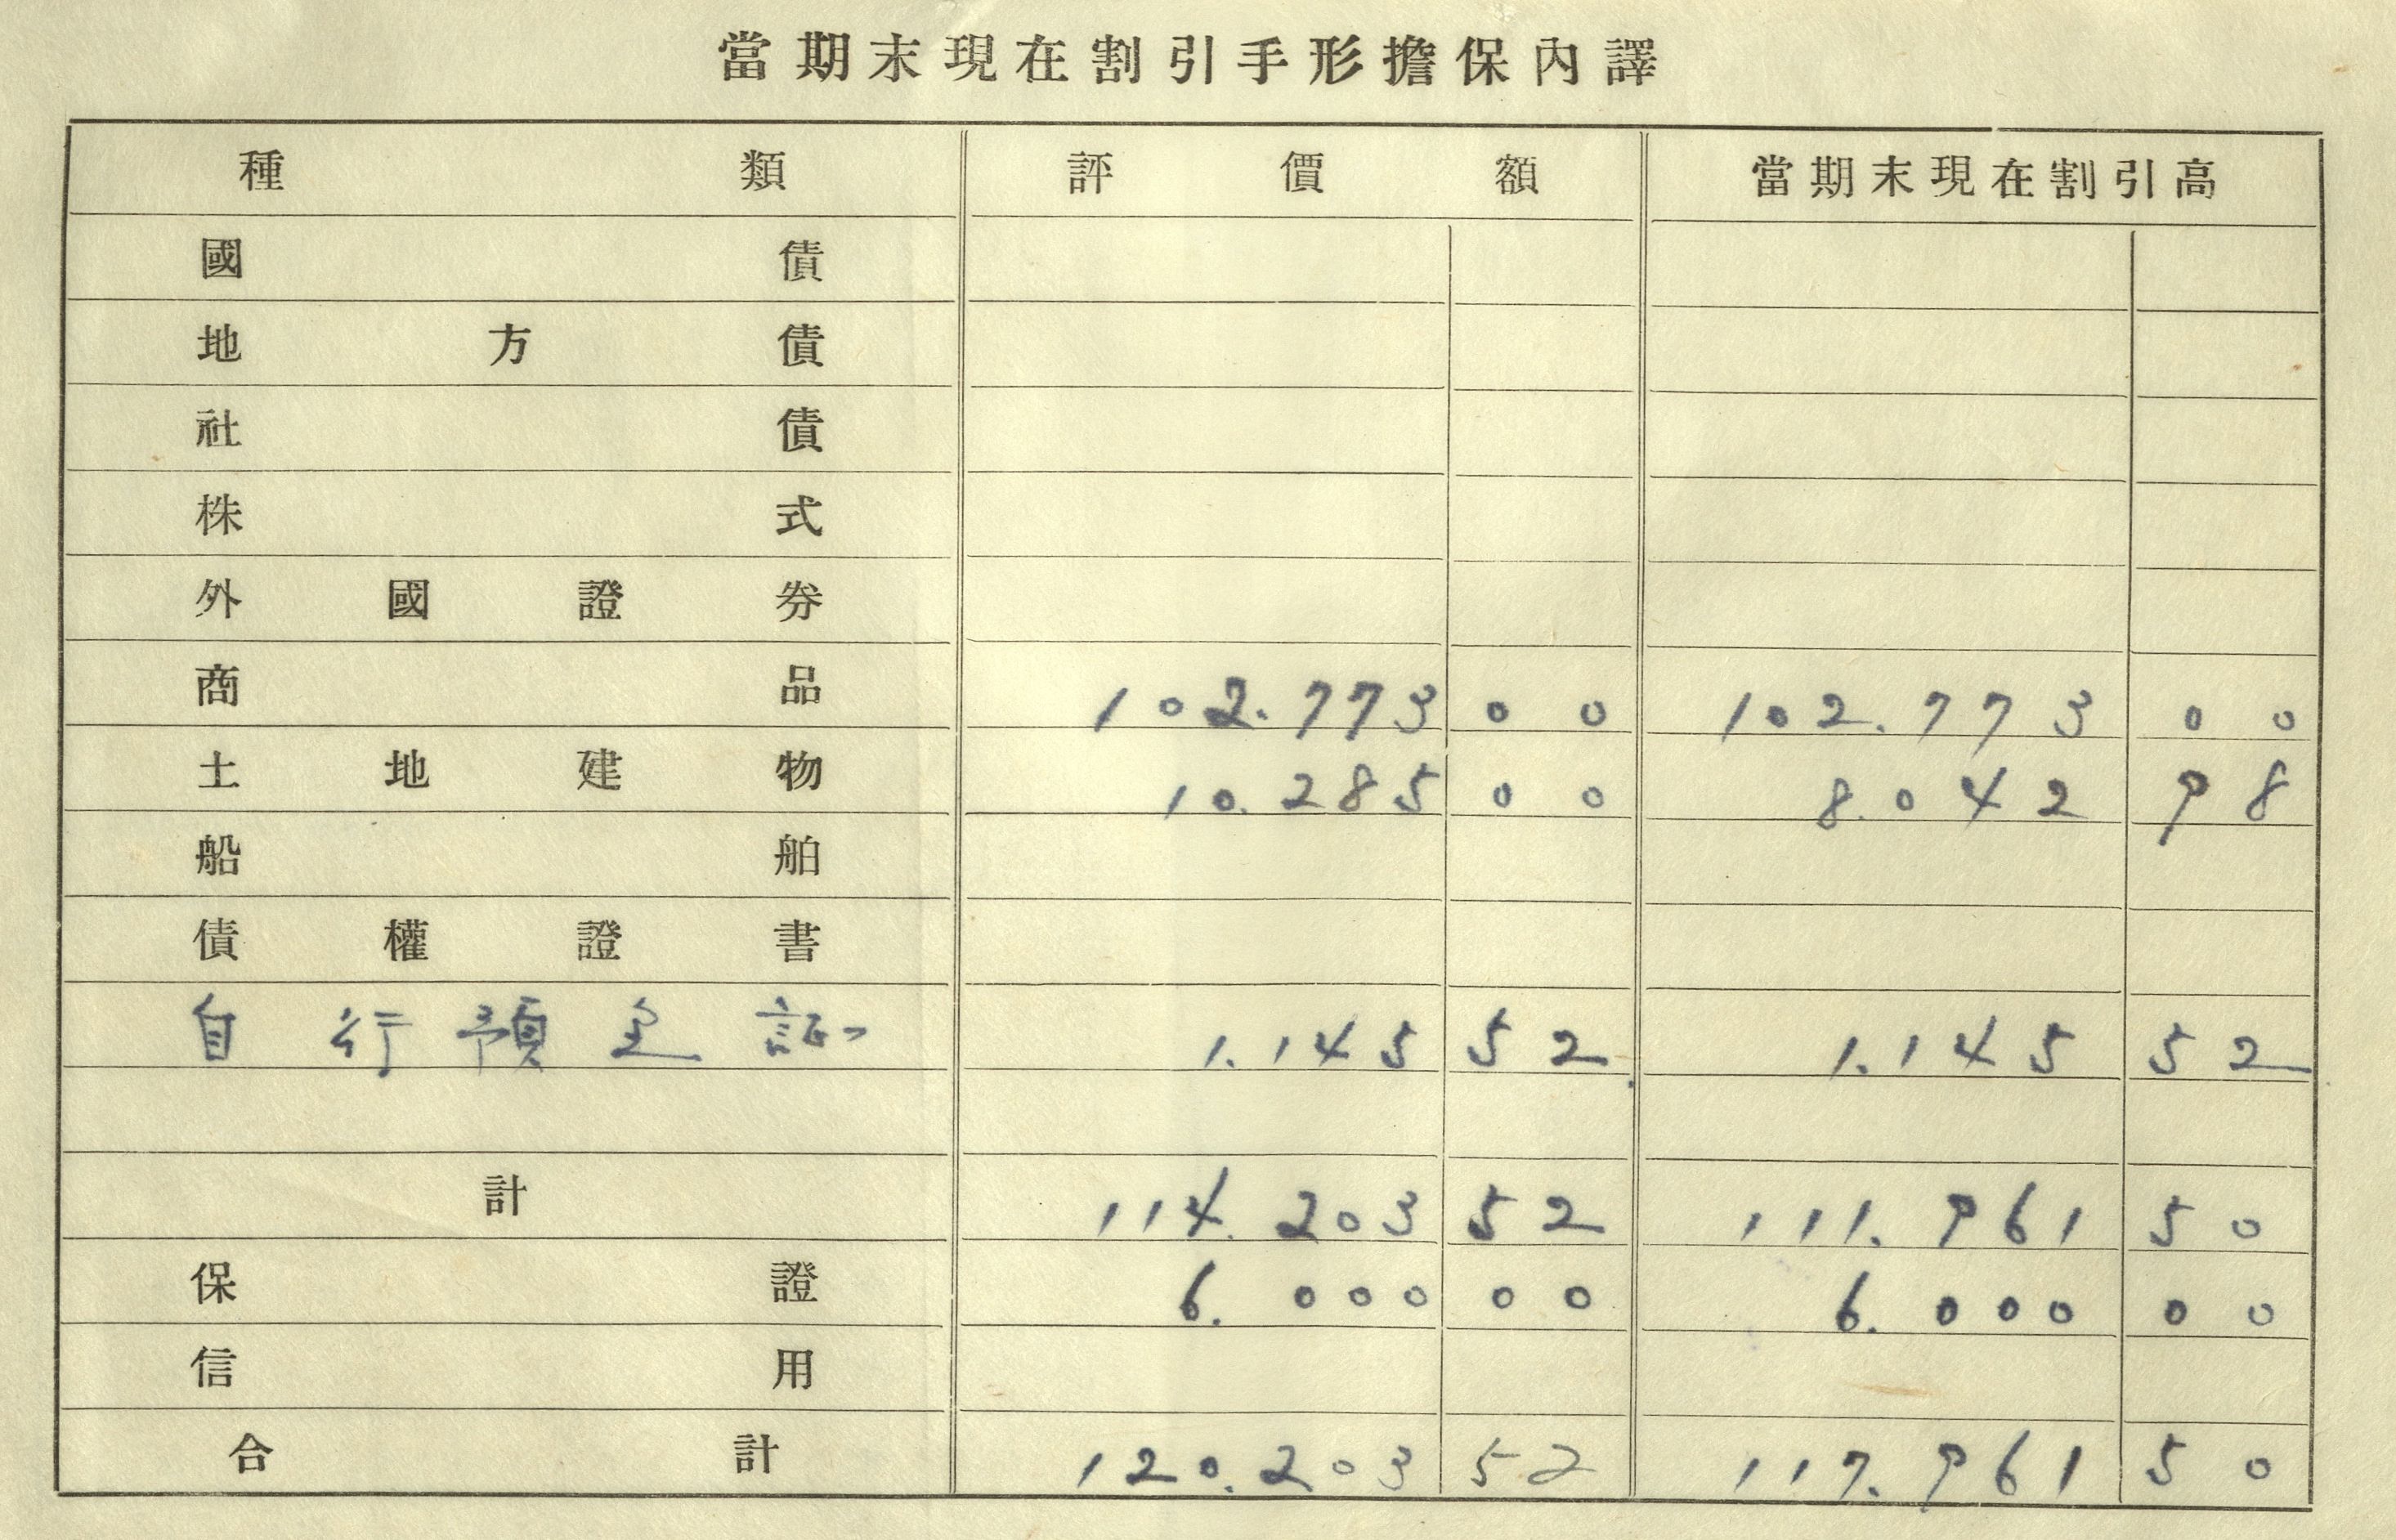 當期末現在割引手形擔保內譯
種類 評價額 當期末現在割引高
國債
地方債
社債
株式
外國證券
商品 102.773 00 102.773 00
土地建物 10.285 00 8.042 98
船舶
債權證書
自行預金証 1.145 52 1.145 52
計 114.203 52 111.961 50
保證 6.000 00 6.000 00
信用
合計 120.203 52 117.961 50